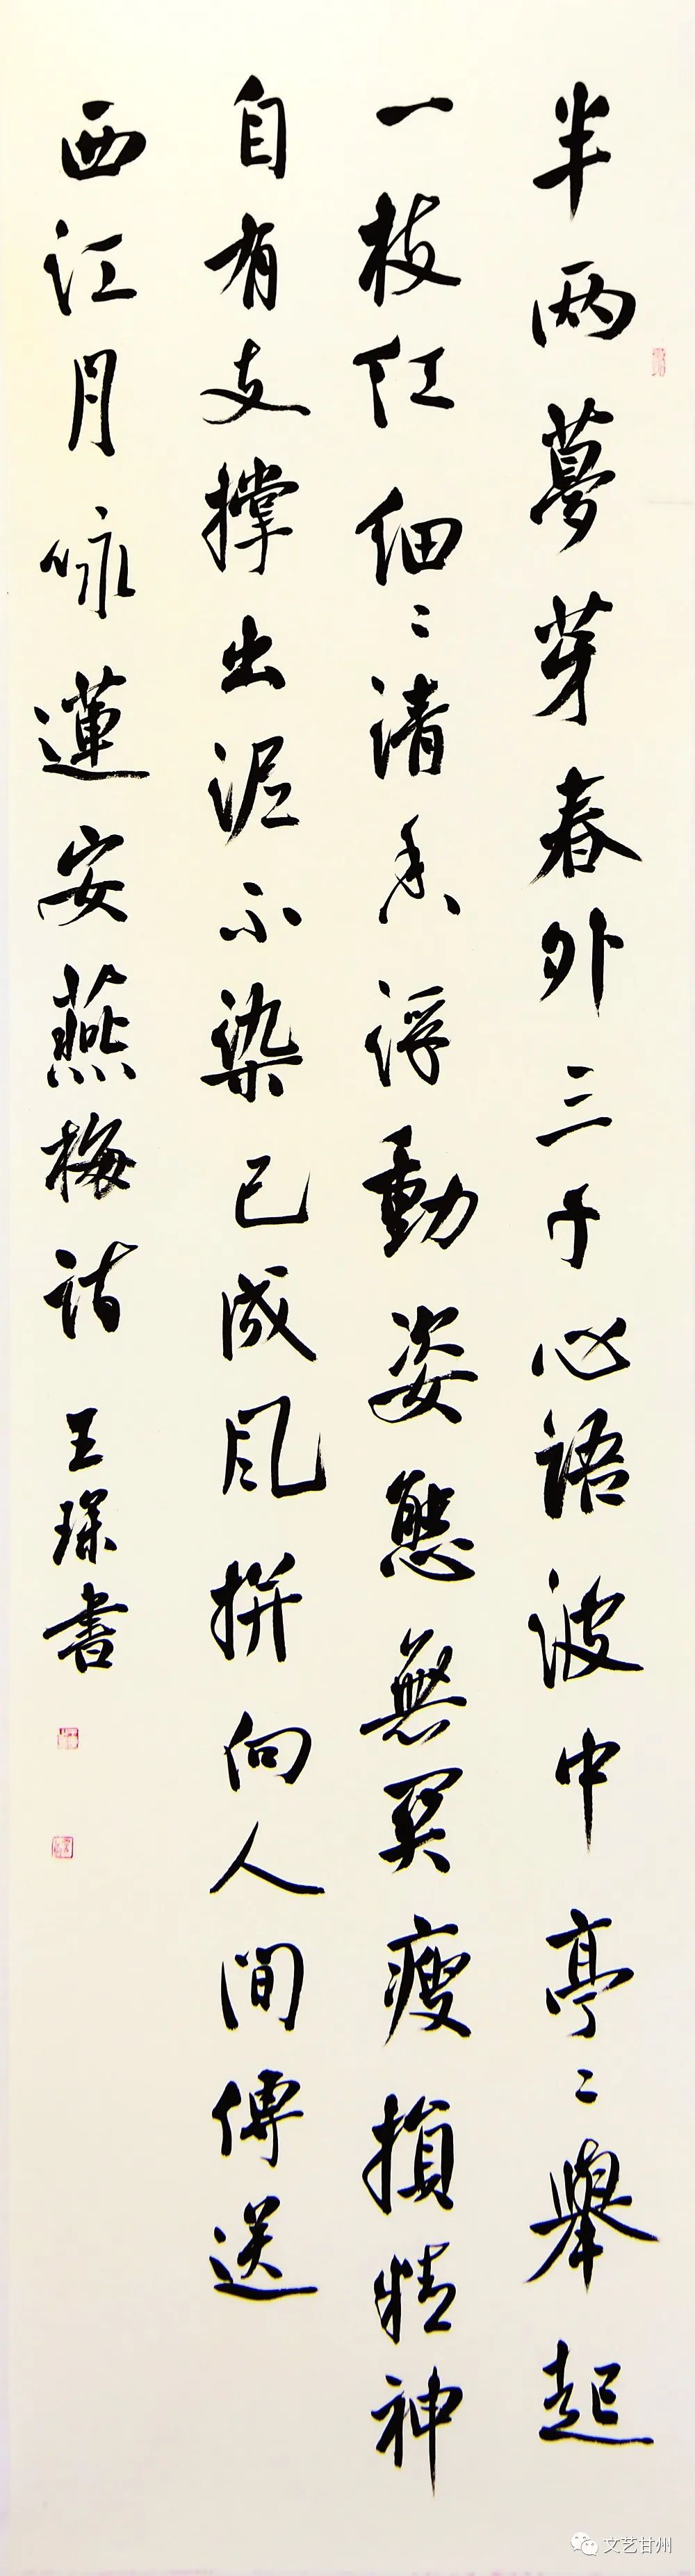 半两夢芽春外三千心語波中亭〻舉起
一枝红细〻清香浮動姿態無関瘦損精神
自有支撑出泥不染已成风拼向人間傳送
西江月咏蓮安燕梅詩 王琛書
文艺甘州